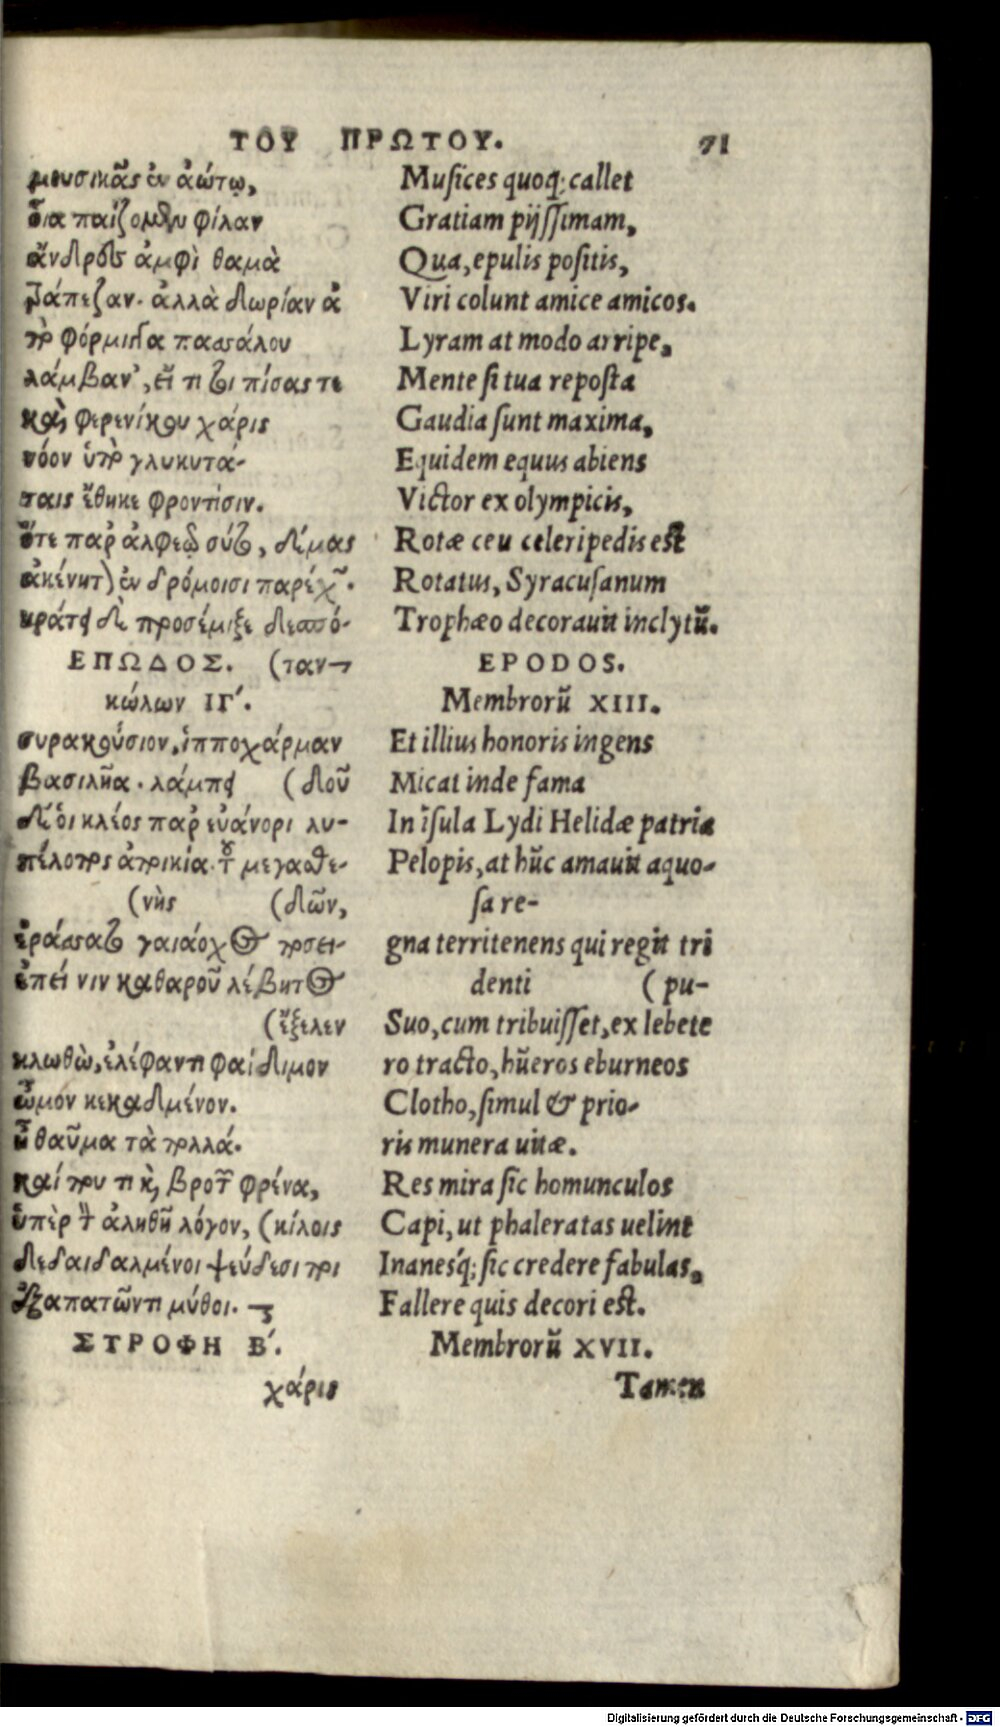 ΤΟΥ ΠΡΩΤΟΥ. 71
μουσικᾶς ἐν ἀώτῳ,
οἷα παίζομεν φίλαν
ἄνδρες ἀμφὶ θαμὰ
τράπεζαν. ἀλλὰ δωρίαν ἀ
πὸ φόρμιγγα πασσάλου
λάμβαν', εἴ τι τοι πίσας τε
καὶ φερενίκου χάρις
νόον ὑπὸ γλυκυτά-
ταις ἔθηκε φροντίσιν.
ὅτε παρ' ἀλφεῷ σύτο, δέμας
ἀκέντητον ἐν δρόμοισι παρέχων.
κράτει δὲ προσέμιξε δεσπό-
ΕΠΩΔΟΣ. (ταν
κώλων ΙΓ'.
συρακούσιον, ἱπποχάρμαν
βασιλῆα. λάμπει (δοῦ
δέ οἱ κλέος παρ' εὐάνορι λυ-
πέλοπος ἀποικία. τοῦ μεγασθε-
(νὴς (δῶν,
ἐράσσατο γαιάοχος ποσει-
ἐπεί νιν καθαροῦ λέβητος
(ἔξελεν
κλωθὼ, ἐλέφαντι φαίδιμον
ὦμον κεκαδμένον.
ἦ θαῦμα τὰ πολλά.
καί που τι καὶ βροτῶν φρένα,
ὑπὲρ τὸν ἀληθῆ λόγον, (κίλοις
δεδαιδαλμένοι ψεύδεσι ποι
ἐξαπατῶντι μύθοι.
ΣΤΡΟΦΗ Β'.
χάρις
Musices quoq; callet
Gratiam pijssimam,
Qua, epulis positis,
Viri colunt amice amicos.
Lyram at modo arripe,
Mente si tua reposta
Gaudia sunt maxima,
Equidem equus abiens
Victor ex olympicis,
Rotæ ceu celeripedis est
Rotatus, Syracusanum
Trophæo decorauit inclytũ.
EPODOS.
Membrorũ XIII.
Et illius honoris ingens
Micat inde fama
In ĩsula Lydi Helidæ patria
Pelopis, at hũc amauit aquo-
sa re-
gna territenens qui regit tri
denti (pu-
Suo, cum tribuisset, ex lebete
ro tracto, hũeros eburneos
Clotho, simul & prio-
ris munera uitæ.
Res mira sic homunculos
Capi, ut phaleratas uelint
Inanesq́; sic credere fabulas,
Fallere quis decori est.
Membrorũ XVII.
Tamen
Digitalisierung gefördert durch die Deutsche Forschungsgemeinschaft - DFG